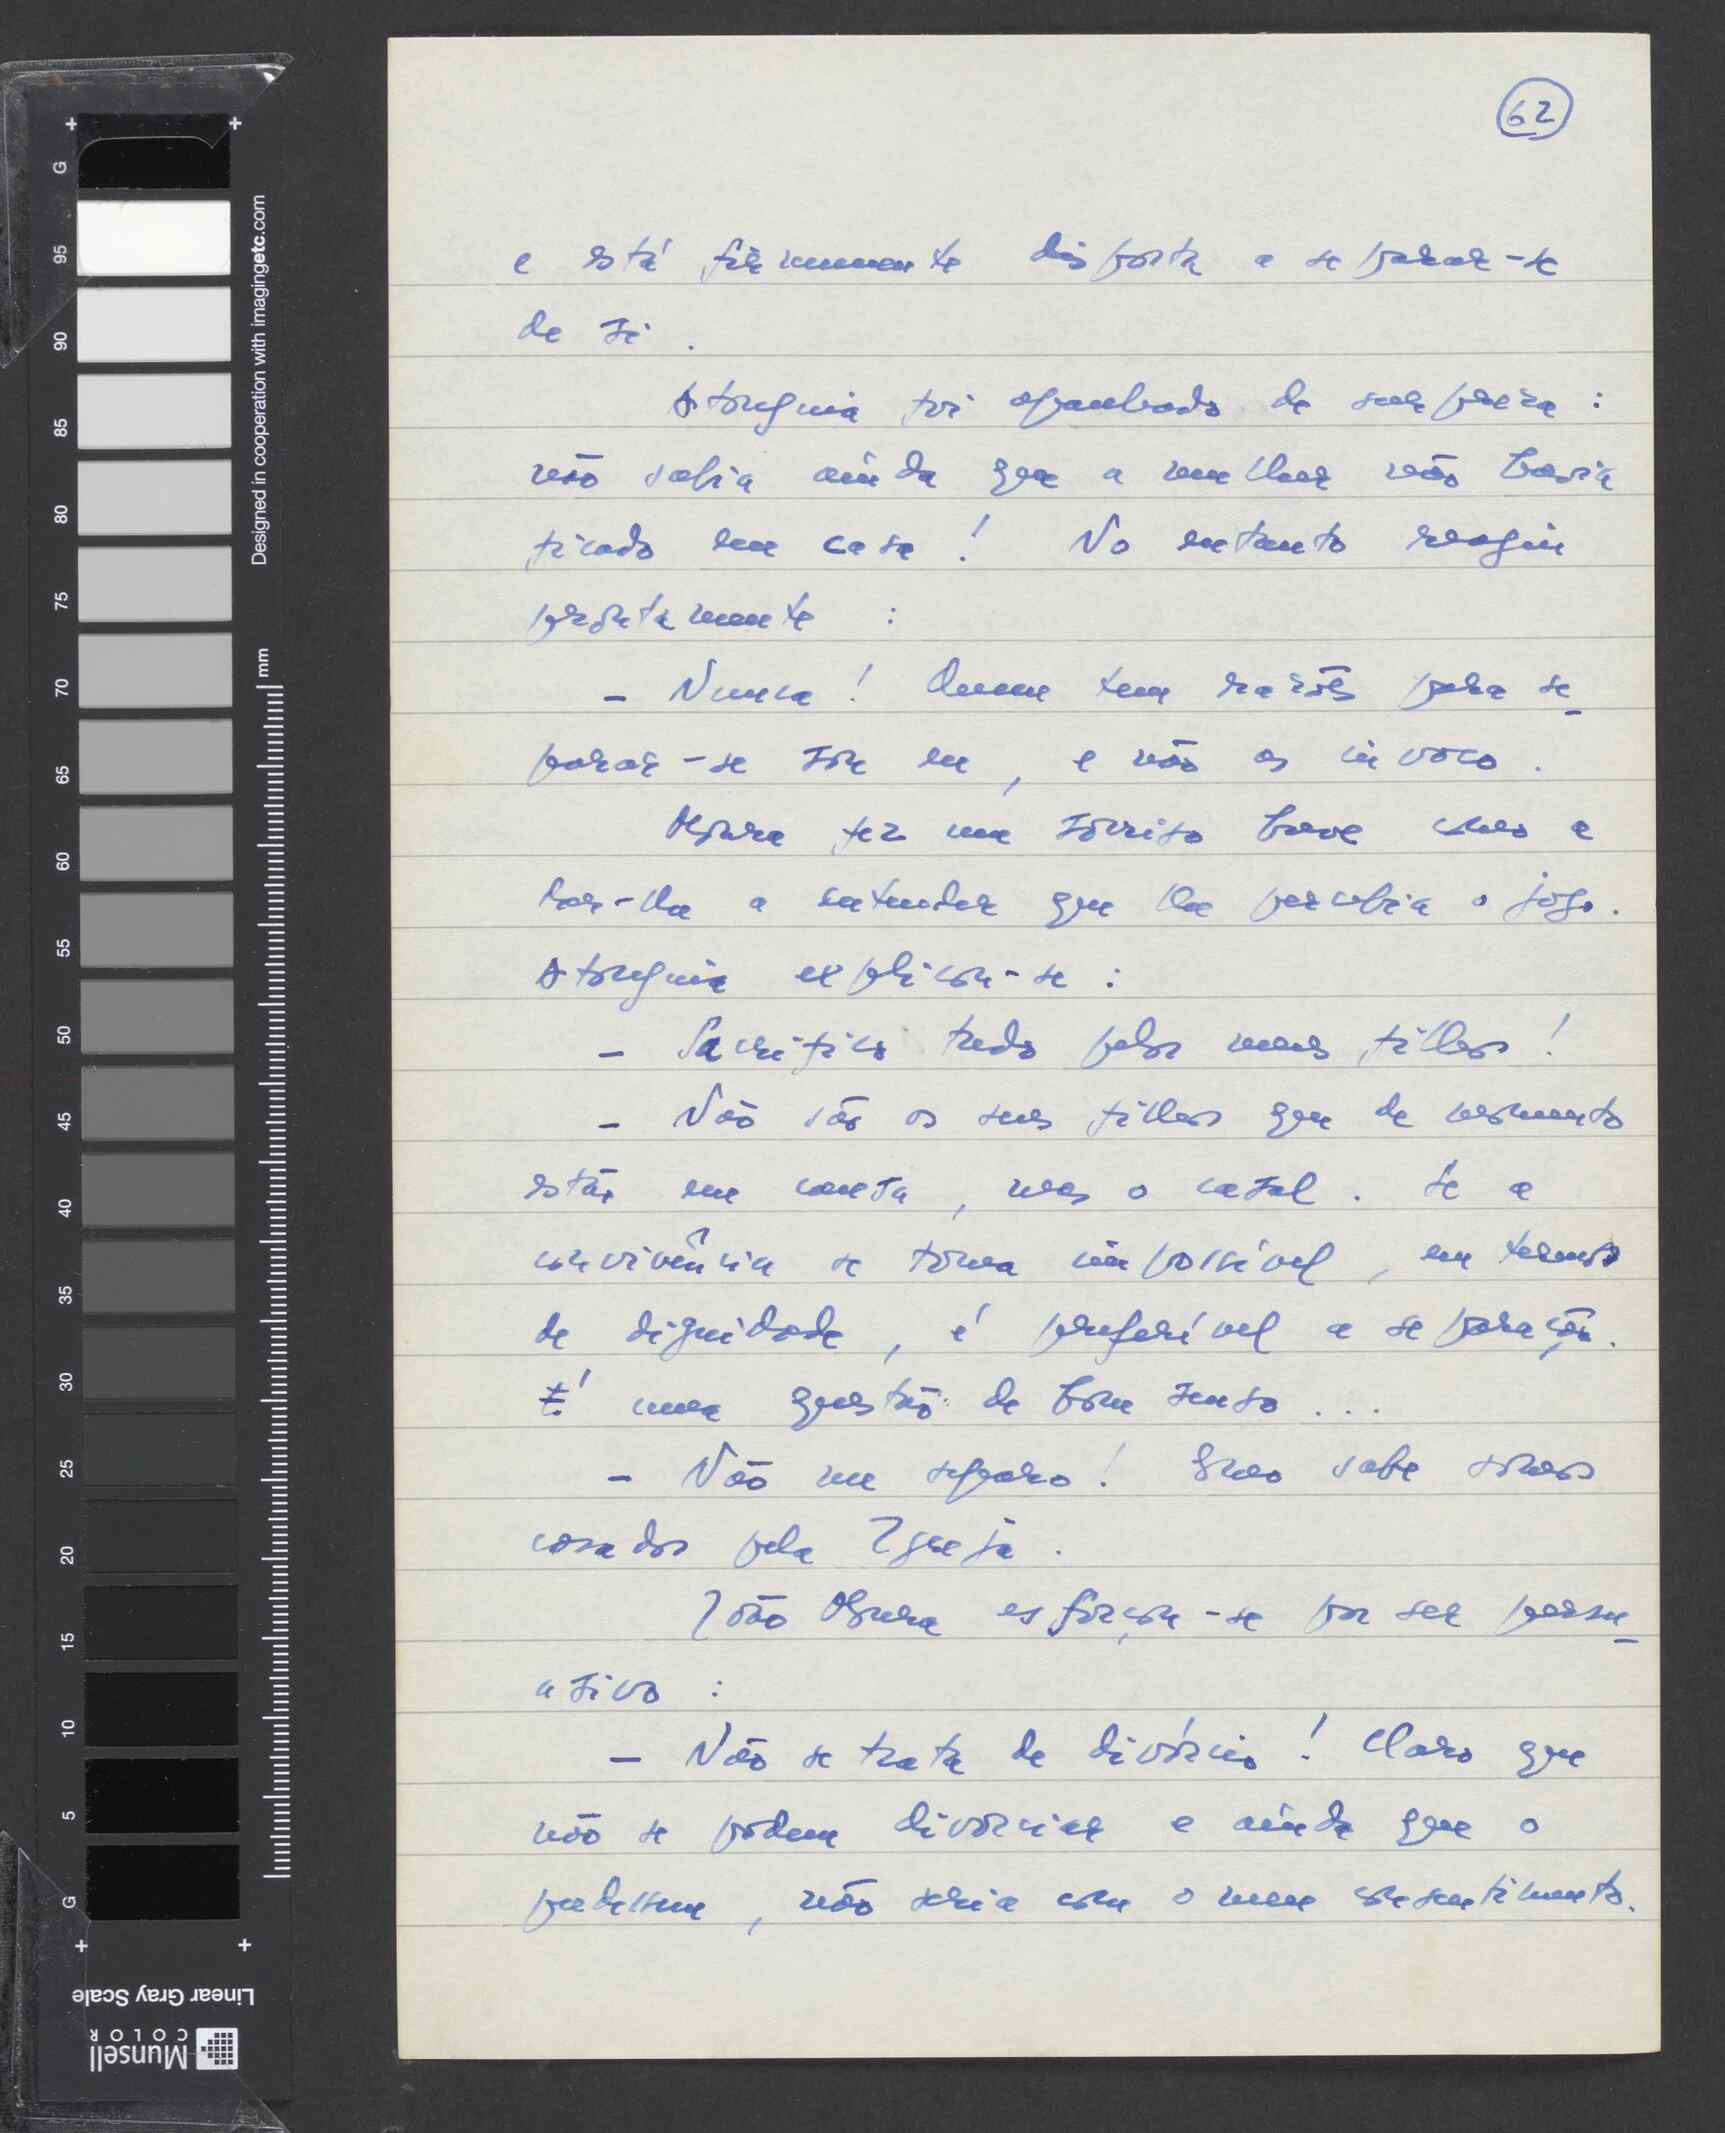 62
e está firmemente disposta a separar-se
de si.
Atouguia foi apanhado de surpresa :
não sabia ainda que a mulher não havia
ficado em casa ! No entanto reagiu
prontamente :
— Nunca ! Quem tem razões para se-
parar-se sou eu, e não as invoco.
Moura fez um sorriso breve como a
dar-lhe a entender que lhe percebia o jogo.
Atouguia explicou-se :
— Sacrifico tudo pelos meus filhos !
— Não são os seus filhos que de momento
estão em causa, mas o casal. Se a
convivência se torna impossível, em termos
de dignidade, é preferível a separação.
É uma questão de bom senso ...
— Não me separo ! Como sabe somos
casados pela Igreja.
João Moura esforçou-se por ser persu-
asivo :
— Não se trata de divórcio ! Claro que
não se podem divorciar e ainda que o
pudessem, não seria com o meu consentimento.
G
95
90
85
80
75
70
65
60
55
50
45
40
35
30
25
20
15
10
5
G
mm
Designed in cooperation with imagingetc.com
Linear Gray Scale
Munsell
COLOR